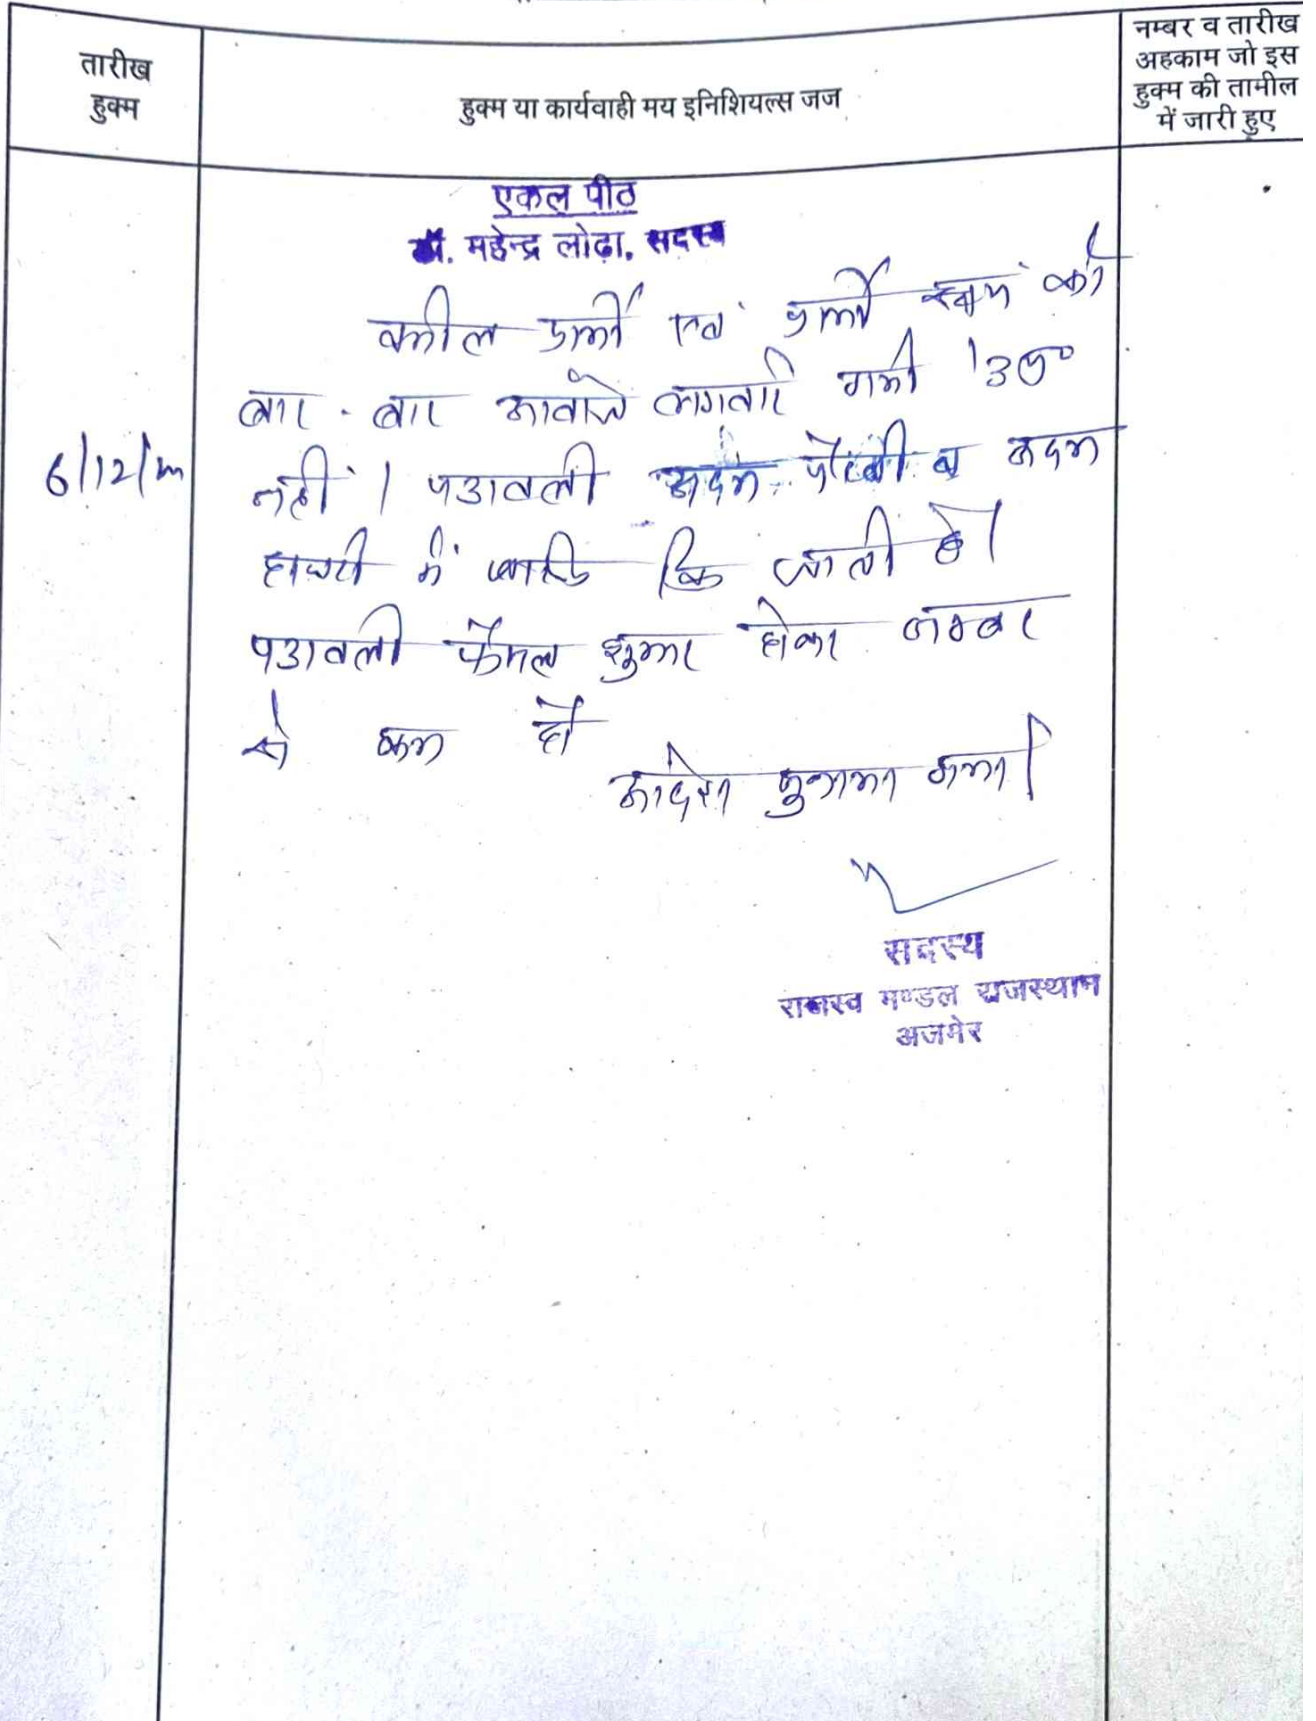 तारीख
हुक्म
हुक्म या कार्यवाही मय इनिशियल्स जज
नम्बर व तारीख
अहकाम जो इस
हुक्म की तामील
में जारी हुए
एकल पीठ
डॉ. महेन्द्र लोढ़ा, सदस्य
वकील प्रार्थी एवं प्रार्थी स्वयं को
बार - बार आवाजे लगवाई गयी उप०
6/12/
नहीं । पत्रावली अदम पैरवी व अदम
हाजरी में खारिज कि जाती है।
पत्रावली फैसल शुमार होकर नम्बर
से कम हो
आदेश सुनाया गया।
सदस्य
राजस्व मण्डल राजस्थान
अजमेर